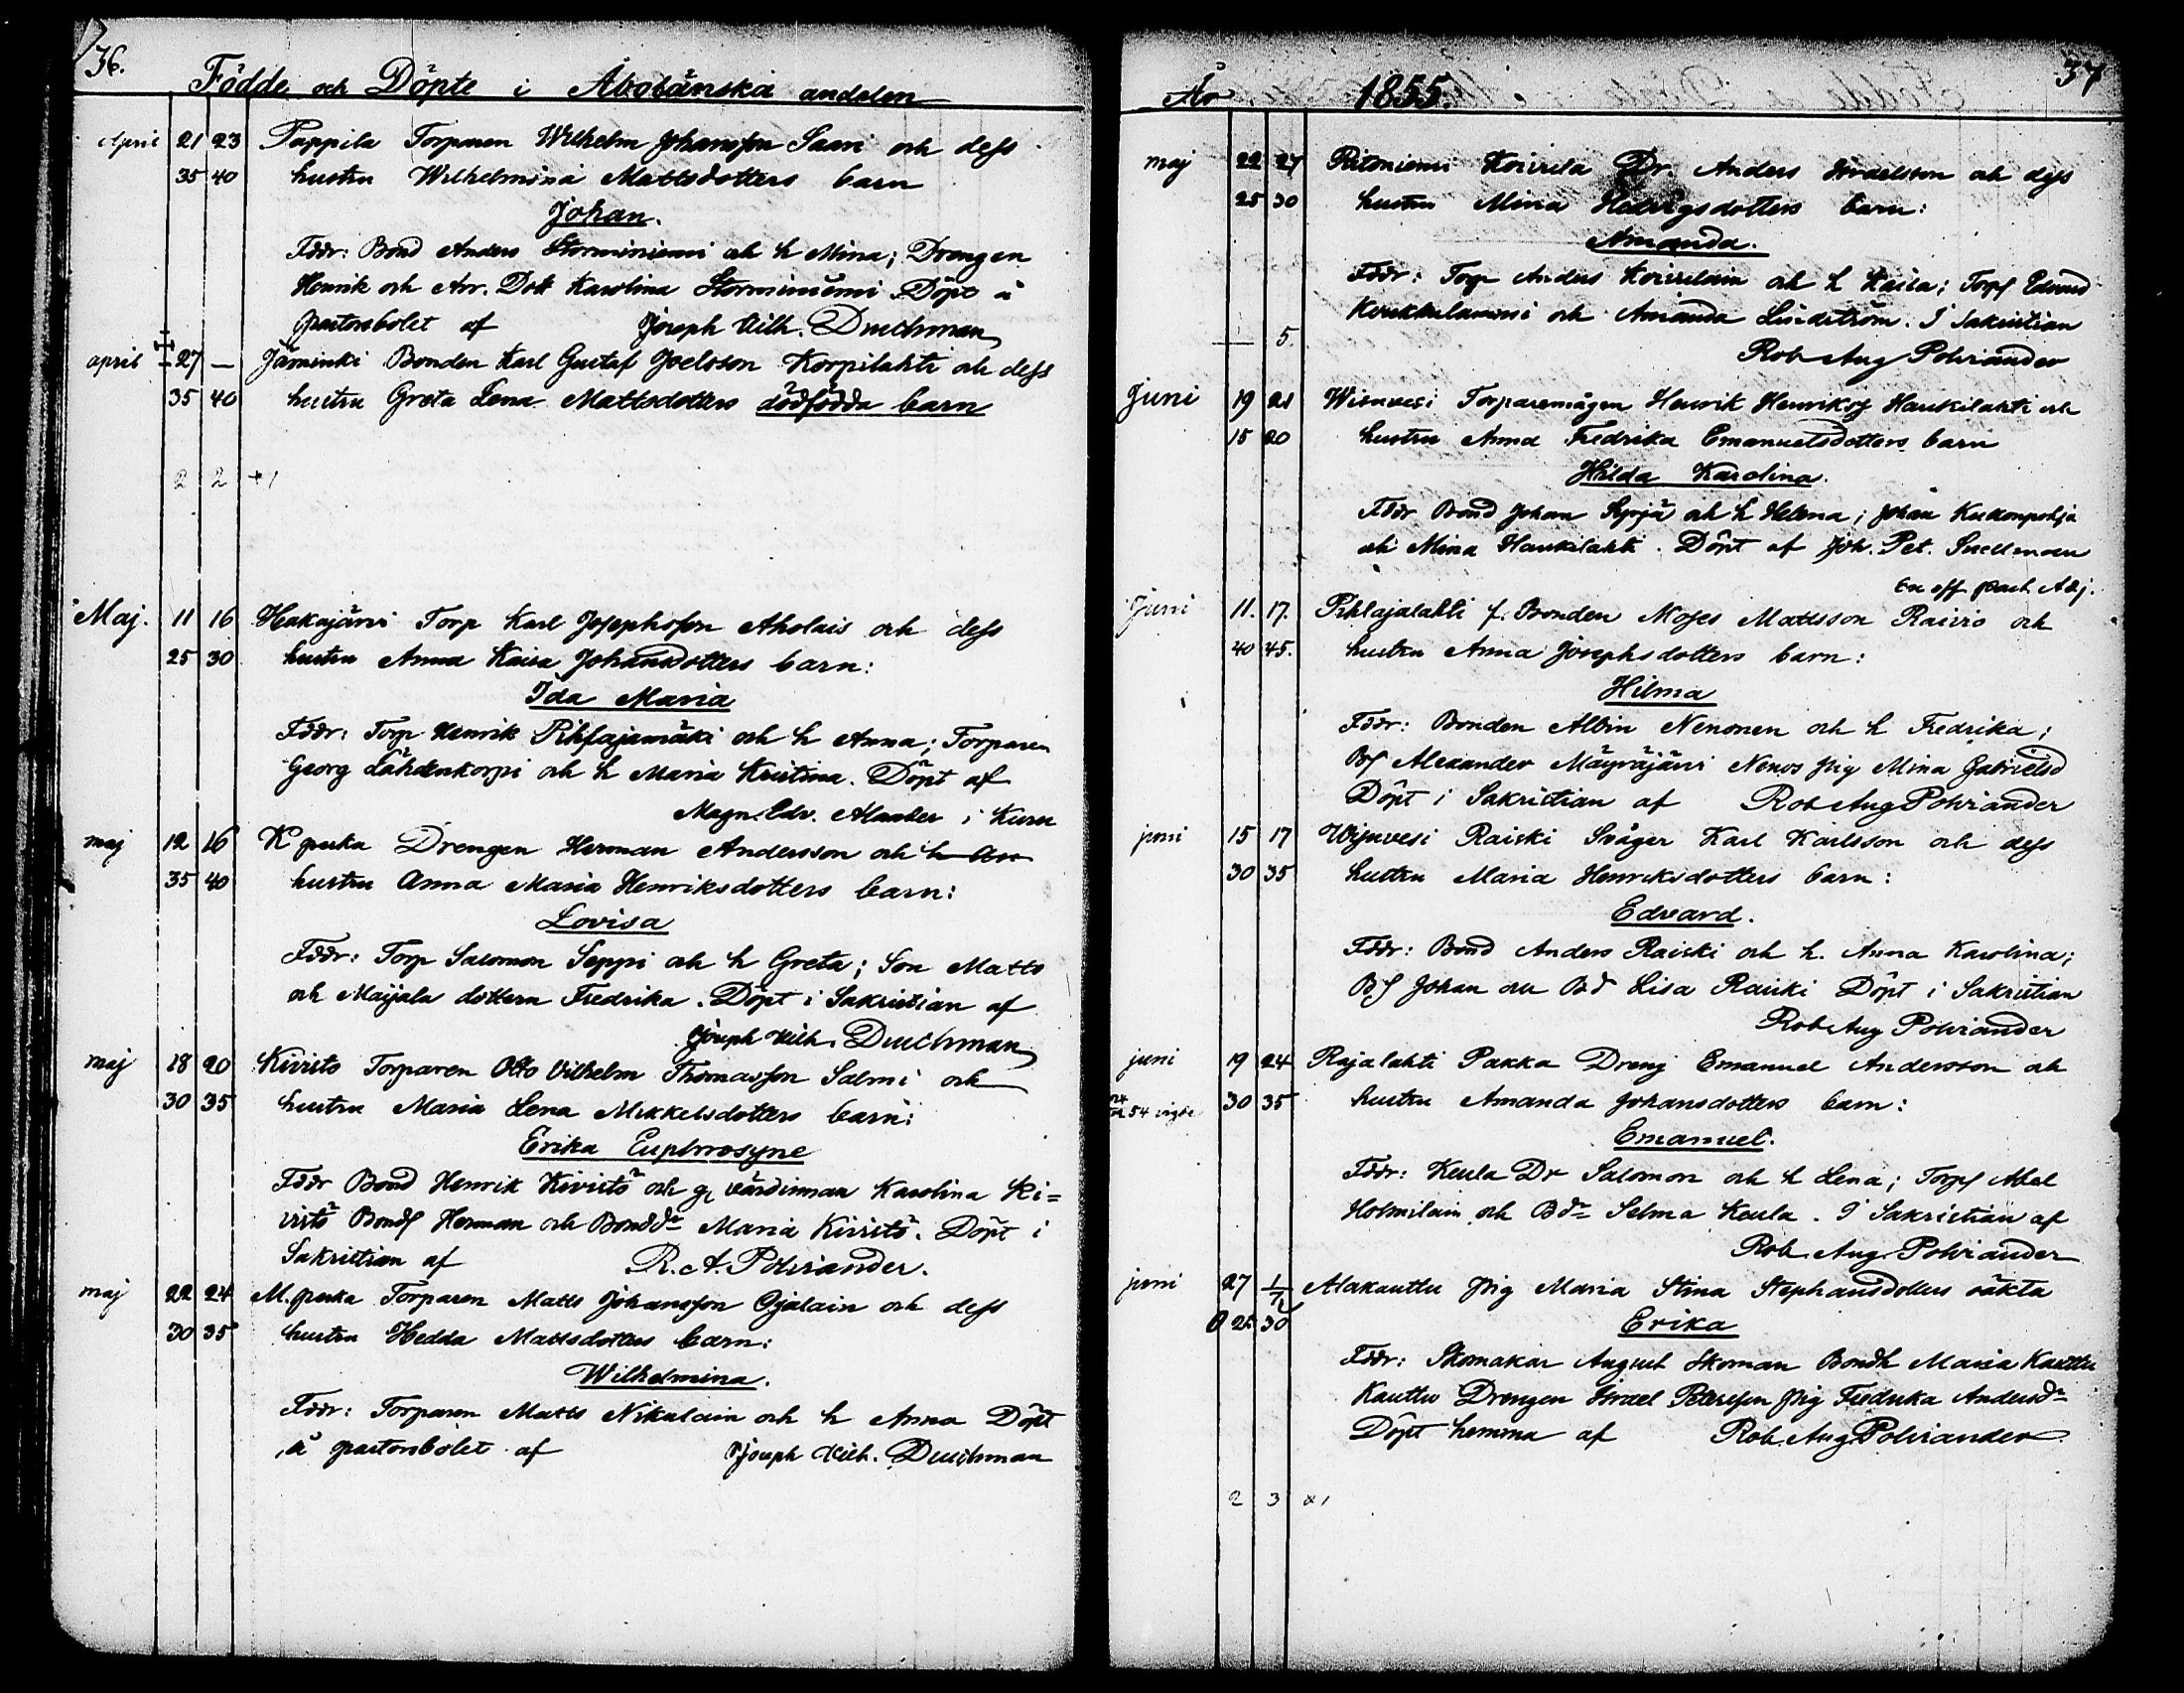 36.
Födde och Döpte i Åbolänska andelen
April 21 23 Pappila Torparen Wilhelm Johansson Saari och dess
35 40 hustru Wilhelmina Mattsdotters barn
Johan.
Fddr: Bond Anders Storminiemi och h Mina; Drengen
Henrik och Arr. Dott Karolina Storminiemi. Döpt å
pastorsbolet af Joseph Vilh. Druchman
april 27 — Jäminki Bonden Karl Gustaf Joelsson Korpilahti och dess
35 40 hustru Greta Lena Mattsdotters dödfödda barn
2 2 +1
Maj. 11 16 Hakajärvi Torp Karl Josephsson Aholais och dess
25 30 hustru Anna Kaisa Johansdotters barn:
Ida Maria
Fddr: Torp Henrik Pihlajamäki och h Anna; Torparen
Georg Lähdenkorpi och h Maria Kristina. Döpt af
Magn. Edv. Alander i Kuru
maj 12 16 K puska Drengen Herman Andersson och h An
35 40 hustru Anna Maria Henriksdotters barn:
Lovisa
Fddr: Torp Salomon Seppi och h Greta; Son Matts
och Maijala dottern Fredrika. Döpt i Sakristian af
Joseph Vilh. Druchman
maj 18 20 Kivistö Torparen Otto Vilhelm Thomasson Salmi och
30 35 hustru Maria Lena Mikkelsdotters barn:
Erika Euphrosyne
Fddr Bond Henrik Kivistö och g. värdinnan Karolina Ki=
vistö Bonds Herman och Bondd:r Maria Kivistö. Döpt i
Sakristian af R. A. Polviander.
maj 22 24 M. puska Torparen Matts Johansson Ojalain och dess
30 35 hustru Hedda Mattsdotters barn:
Wilhelmina.
Fddr: Torparen Matts Nikulain och h Anna Döpt
å pastorsbolet af Joseph Vilh. Druchman
37
År 1855.
maj 22 27 Ritoniemi Koivula Dr. Anders Israelsson och dess
25 30 hustru Mina Hedvigsdotters barn:
Amanda.
Fddr: Torp Anders Koivulain och h Kaisa; Torps Edvard
och Amanda Lindström. I Sakristian
5. Rob Aug Polviander
Juni 19 21 Wisuvesi Torparemågen Henrik Henriks Haukilahti och
15 20 hustru Anna Fredrika Emanuelsdotters barn
Hilda Karolina.
Fddr Bond Johan Syrjä och h Helena; Johan Kukonpohja
och Mina Haukilahti. Döpt af Joh. Pet. Snellman
Ex off past Adj.
Juni 11. 17. Pihlajalahti f. Bonden Moses Mattsson Raiviö och
40 45. hustru Anna Josephsdotters barn:
Hilma
Fddr: Bonden Albin Nenonen och h Fredrika;
Bs Alexander Mäyräjärvi Nenos pig Mina Gabrielsd
Döpt i Sakristian af Rob Aug Polviander
juni 15 17 Wisuvesi Raiski Svåger Karl Karlsson och dess
30 35 hustru Maria Henriksdotters barn:
Edvard.
Fddr: Bond Anders Raiski och h. Anna Karolina;
Bs Johan och Bd Lisa Raiski Döpt i Sakristian
Rob Aug Polviander
juni 19 24 Rajalahti Pakka Dreng Emanuel Andersson och
54 vigde 30 35 hustru Amanda Johansdotters barn:
Emanuel.
Fddr: Keula Dr Salomon och h Lena; Torps Abel
Holmilain och Bd:r Selma Keula. I Sakristian af
Rob. Aug. Polviander
juni 27 1/7 Alakauttu pig Maria Stina Stephansdotters oäkta
0 25 30 Erika
Fddr: Skomakar August Skoman Bondh Maria Kauttu
Kauttu Drengen Israel Petersson pig Fredrika Andersd:r
Döpt hemma af Rob. Aug. Polviander
2 3 x1